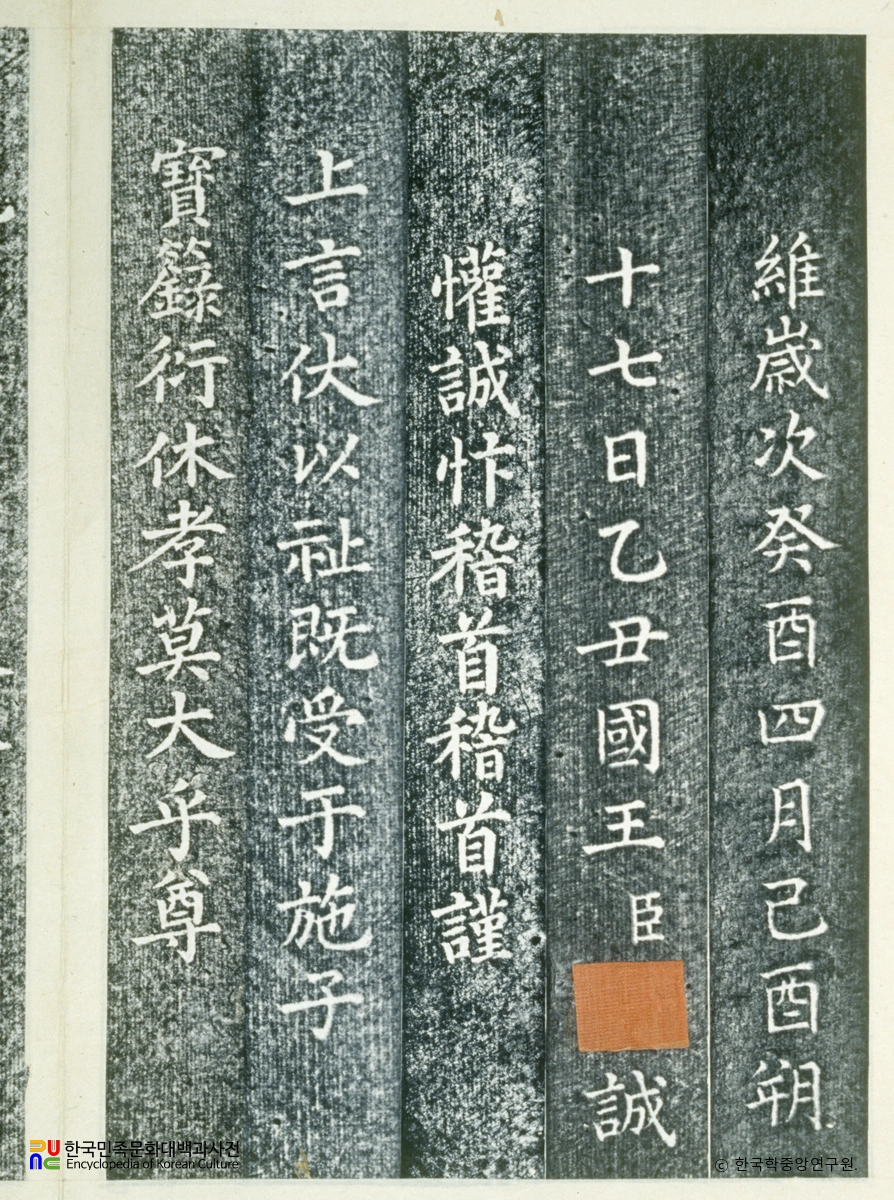 維歲次癸酉四月己酉朔
十七日乙丑國王臣 誠
懽誠忭稽首稽首謹
上言伏以祉既受于施子
寶籙衍休孝莫大乎尊
한국민족문화대백과사전
Encyclopedia of Korean Culture
© 한국학중앙연구원.